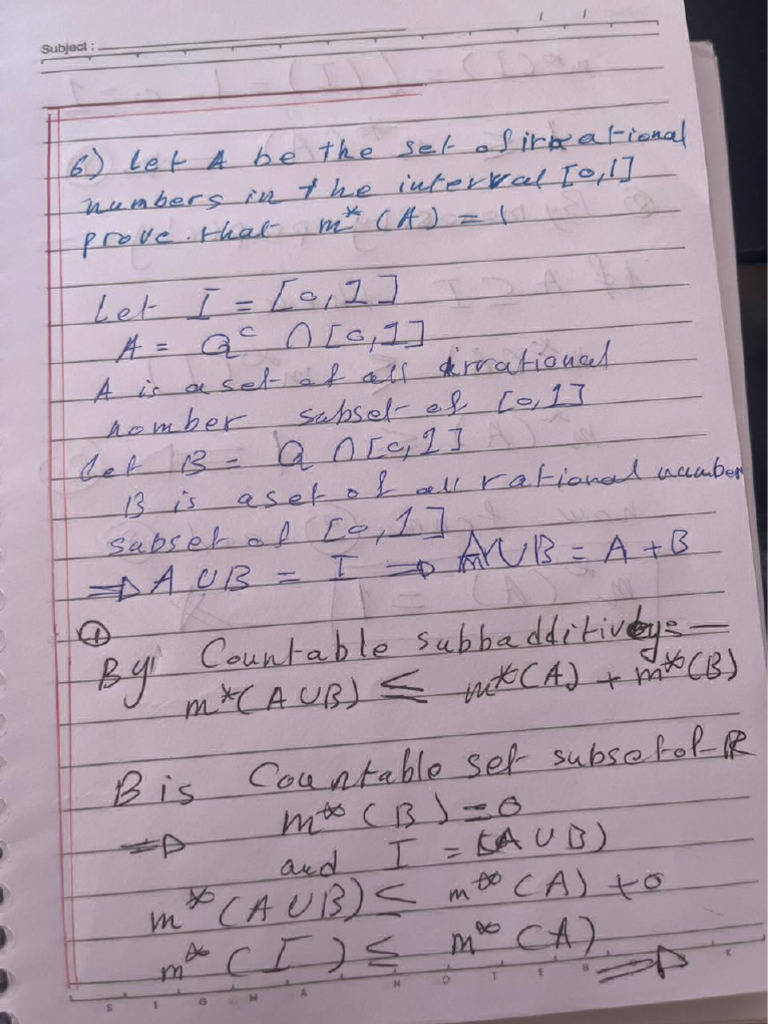 Subject :
6) Let A be the set of irrational
numbers in the interval [0,1]
prove that m* (A) = 1
Let I = [0,1]
A = Qᶜ ∩ [0,1]
A is a set of all irrational
nomber subset of [0,1]
Let B = Q ∩ [0,1]
B is a set of all rational number
subset of [0,1]
⇒ A ∪ B = I ⇒ A ∪ B = A + B
①
By Countable subbadditivity
m*(A ∪ B) ≤ m*(A) + m*(B)
B is Countable set subset of R
⇒ m* (B) = 0
and I = (A ∪ B)
m* (A ∪ B) ≤ m* (A) + 0
m* (I) ≤ m* (A)
⇒
SIGMA NOTE